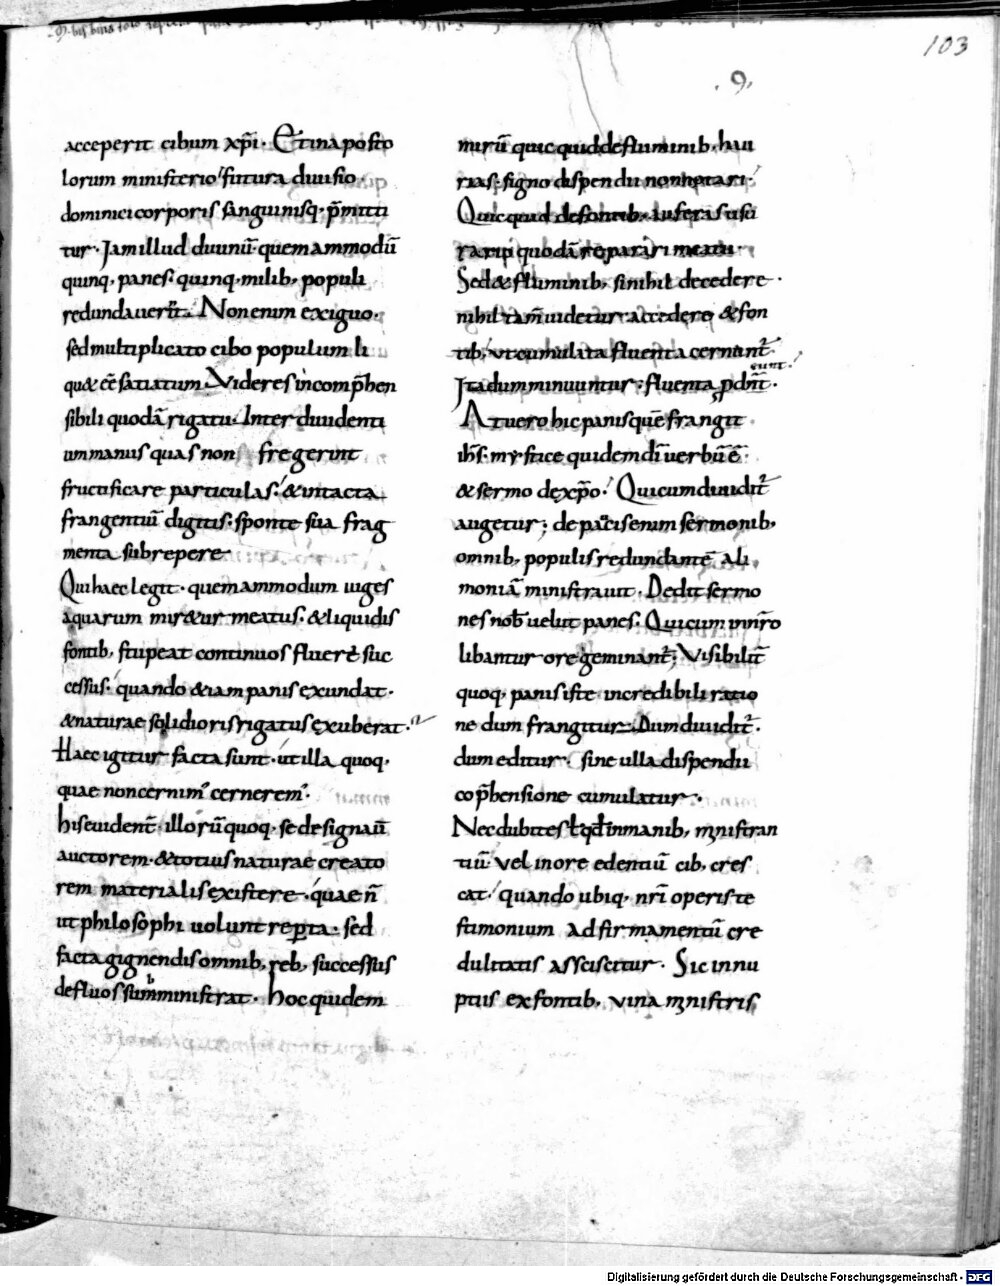 103
.9.
acceperit cibum xp̄i. Et in aposto
lorum ministerio futura diuisio
dominici corporis sanguinisq. p̄mitti
tur. Iam illud diuinū. quemammodū
quinq. panes. quinq. milib, populi
redundauerīt. Non enim exiguo.
sed multiplicato cibo populum li
qu& ēē satiatum. Videres incomp̄hen
sibili quodā rigatu. Inter diuidenti
um manus quas non fregerint
fructificare particulas. & intacta
frangentiū digitis. sponte sua frag
menta subrepere
Qui haec legit. quemammodum iuges
aquarum mir&ur meatus. & liquidis
fontib, stupeat continuos fluere suc
cessus. quando &iam panis exundat.
& naturae solidioris rigatus exuberat.
Haec igitur facta sunt. ut illa quoq.
quae non cernim' cernerem'.
his euident̄. illorū quoq. se designauı̄
auctorem. & totius naturae creato
rem materialis existere. quae n̄
ut philosophi uolunt reꝑta. sed
facta gignendis omnib, reb, successus
defluos sumministrat. hoc quidem
mirū quic quid de fluminib, hau
rias. signo dispendii non notari.
Quicquid de fontib, auferas usu
rario quodā reparari meatu.
Sed & fluminib, si nihil decedere.
nihil tam̄ uidetur accedere & fon
tib, ut cumulata fluenta cernunt̄.
Ita dum minuuntur; fluenta ꝓdn̄t.
eunt.
At uero hic panis quē frangit
ih̄s. mystice quidem dī uerbū ē
& sermo de xp̄o. Qui cum diuidit̄
augetur; de paucis enim sermonib,
omnib, populis redundantē ali
moniā ministrauit. Dedit sermo
nes nob̄ uelut panes. Qui cum in nr̄o
libantur ore geminant̄; Visibilit̄
quoq, panis iste incredibili ratio
ne dum frangitur. Dum diuidit̄.
dum editur. sine ulla dispendii
cōp̄hensione cumulatur.
Nec dubites ł qđ in manib, ministran
tiū vel in ore edentiū cib, cres
cat. quando ubiq, nr̄i operis te
stimonium ad firmamentū cre
dulitatis asciscitur. Sic in nu
ptiis ex fontib, vina ministris
Digitalisierung gefördert durch die Deutsche Forschungsgemeinschaft - DFG